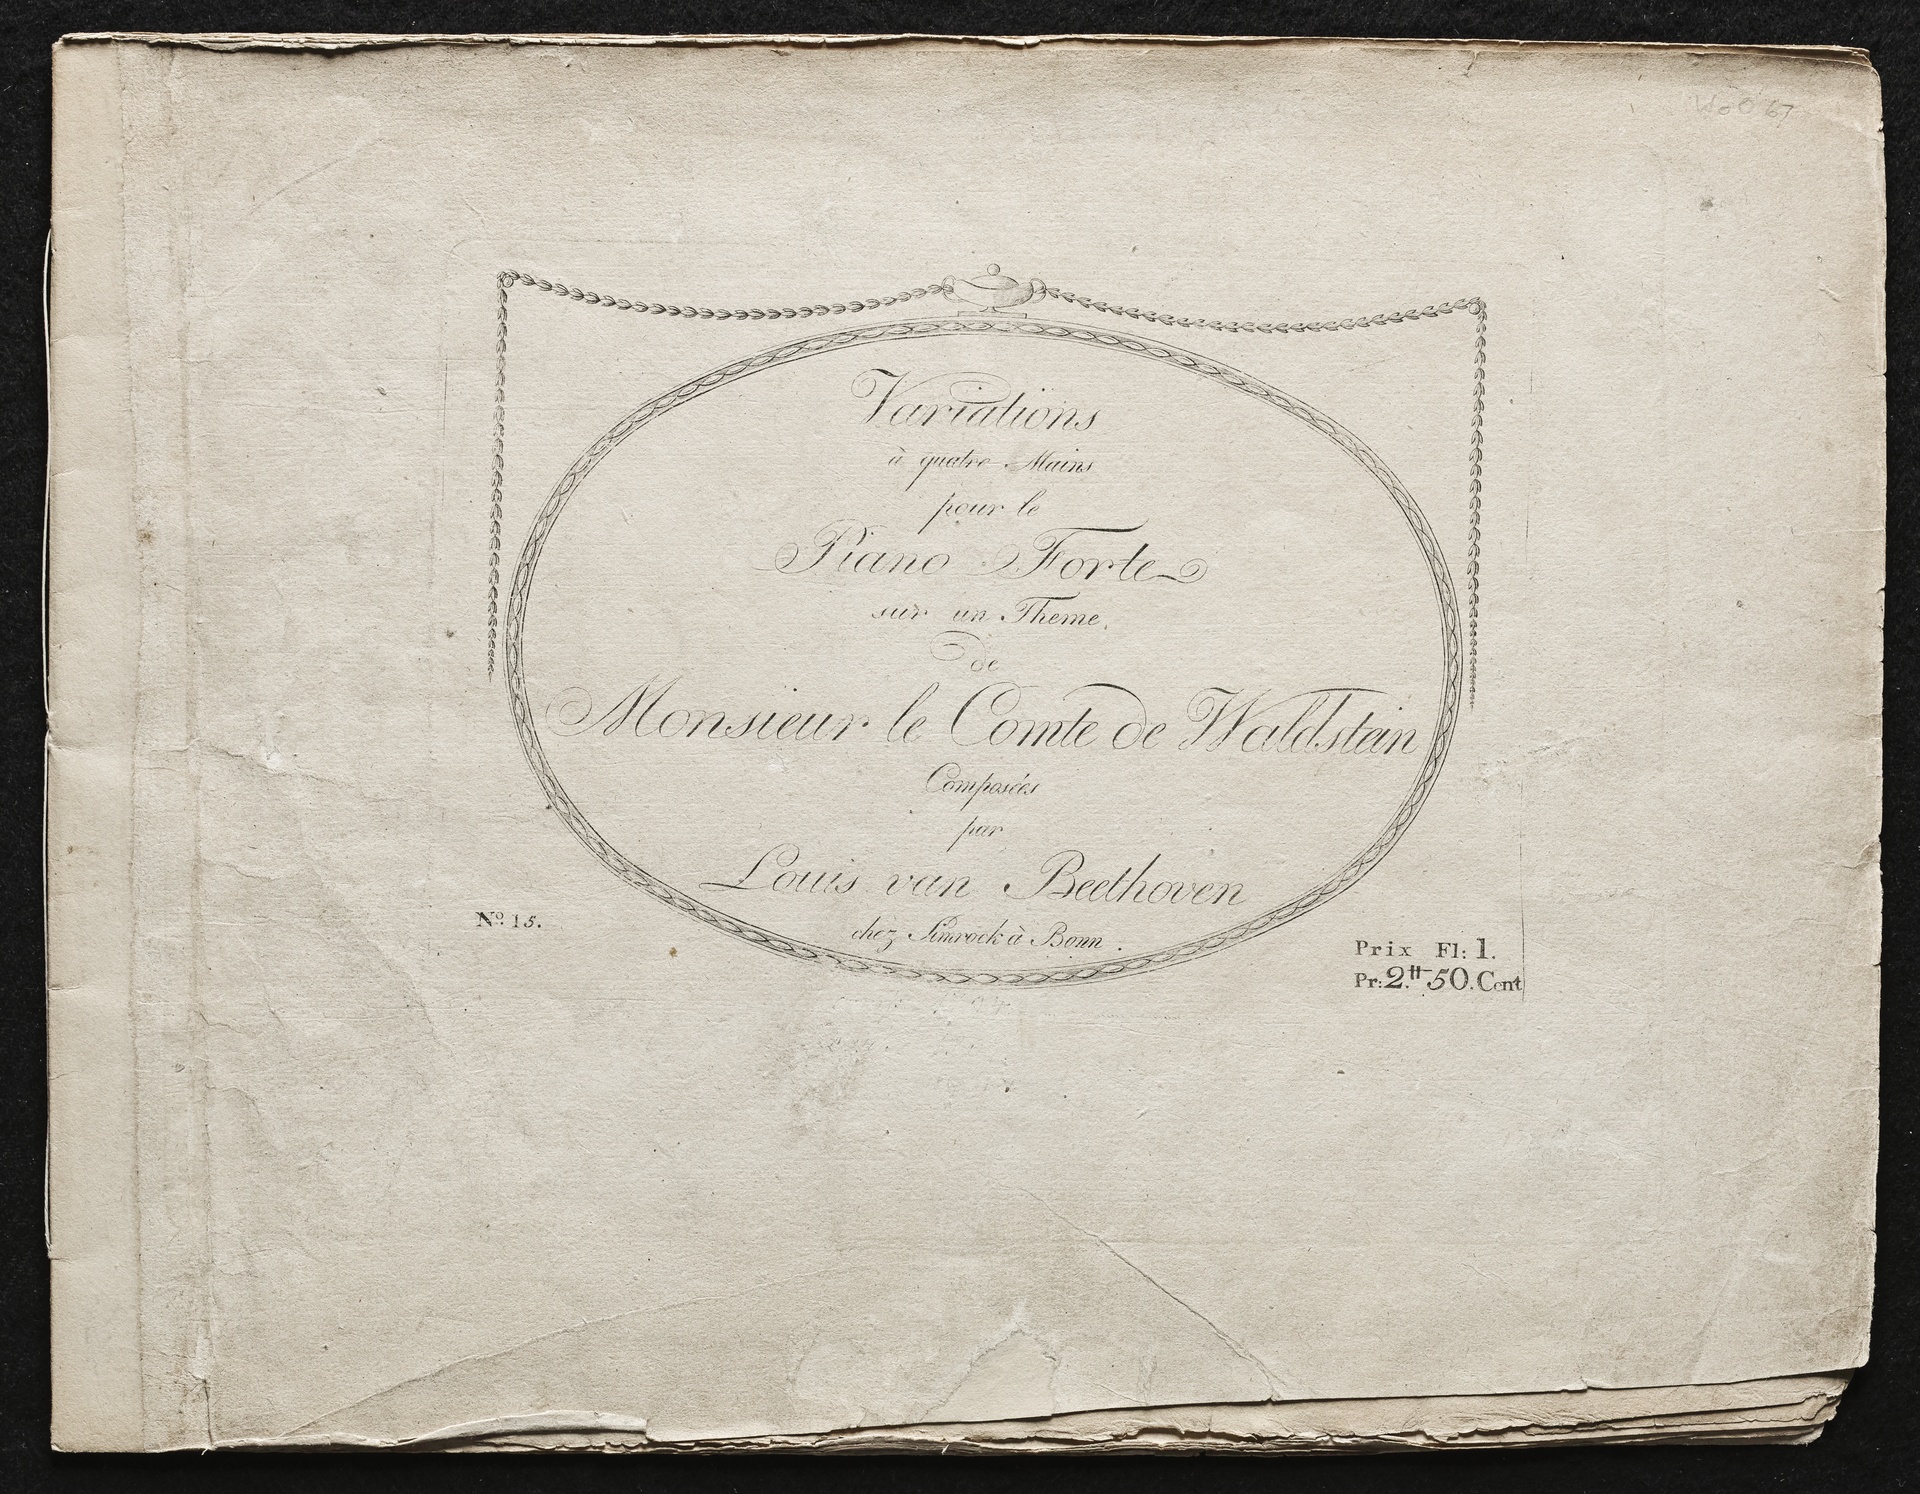 WoO 67
Variations
à quatre Mains
pour le
Piano Forte
sur un Theme
de
Monsieur le Comte de Waldstein
Composées
par
Louis van Beethoven
chez Simrock à Bonn.
No. 15.
Prix Fl: 1.
Pr: 2.tt 50. Cent